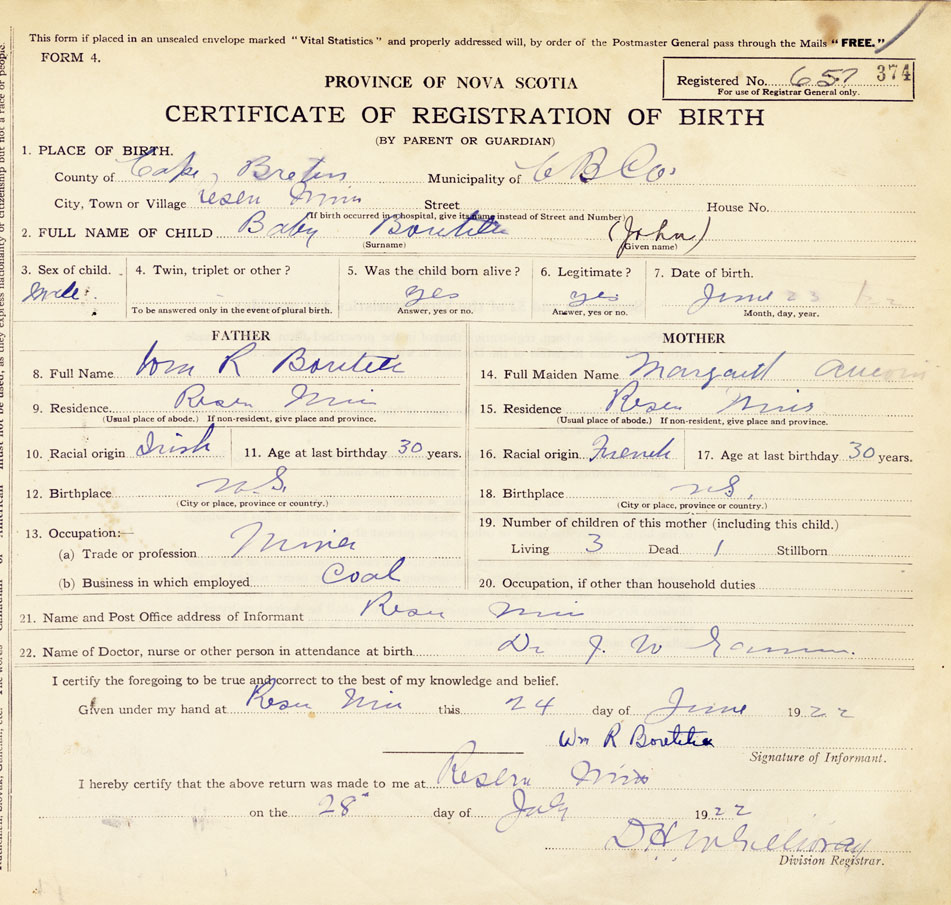 This form if placed in an unsealed envelope marked "Vital Statistics" and properly addressed will, by order of the Postmaster General pass through the Mails "FREE."
FORM 4.
PROVINCE OF NOVA SCOTIA
Registered No. 657 374
For use of Registrar General only.
CERTIFICATE OF REGISTRATION OF BIRTH
(BY PARENT OR GUARDIAN)
1. PLACE OF BIRTH.
County of Cape Breton Municipality of C B Co.
City, Town or Village Street House No.
(If birth occurred in a hospital, give its name instead of Street and Number)
2. FULL NAME OF CHILD Baby (John)
(Surname) (Given name)
3. Sex of child. 4. Twin, triplet or other? 5. Was the child born alive? 6. Legitimate? 7. Date of birth.
Male yes yes June 23
To be answered only in the event of plural birth. Answer, yes or no. Answer, yes or no. Month, day, year.
FATHER MOTHER
8. Full Name Wm R 14. Full Maiden Name Margaret
9. Residence 15. Residence
(Usual place of abode.) If non-resident, give place and province. (Usual place of abode.) If non-resident, give place and province.
10. Racial origin Irish 11. Age at last birthday 30 years. 16. Racial origin French 17. Age at last birthday 30 years.
12. Birthplace N.S. 18. Birthplace N.S.
(City or place, province or country.) (City or place, province or country.)
13. Occupation:— 19. Number of children of this mother (including this child.)
(a) Trade or profession Miner Living 3 Dead 1 Stillborn
(b) Business in which employed Coal 20. Occupation, if other than household duties
21. Name and Post Office address of Informant
22. Name of Doctor, nurse or other person in attendance at birth Dr J. W
I certify the foregoing to be true and correct to the best of my knowledge and belief.
Given under my hand at this 24 day of June 1922
Wm R
Signature of Informant.
I hereby certify that the above return was made to me at
on the 28 day of July 1922
D H McGillivray
Division Registrar.